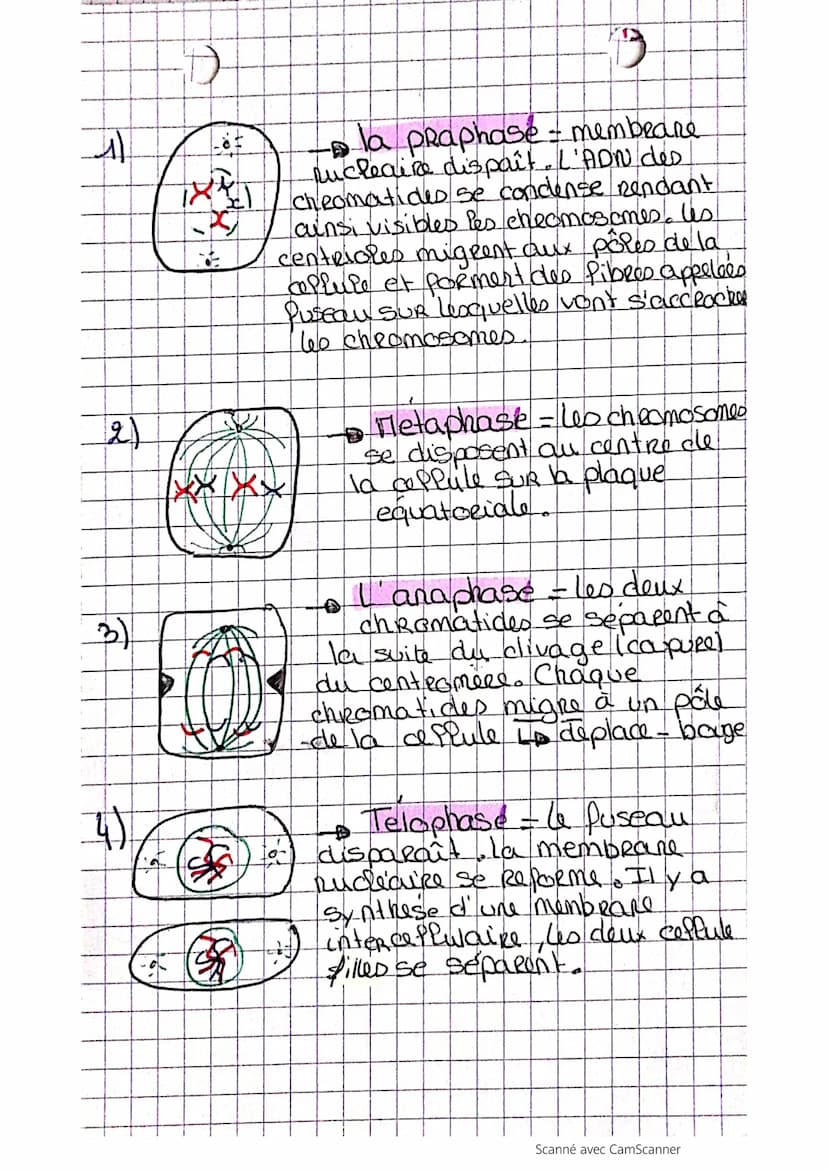 1)
→ la praphase = membrane
nucleaire dispaît. L'ADN des
chromatides se condense rendant
ainsi visibles les chromosomes. les
centrioles migrent aux pôles de la
cellule et forment des fibres appelées
fuseau sur lesquelles vont s'accrocher
les chromosomes.
2)
→ Métaphase = les chromosomes
se disposent au centre de
la cellule sur la plaque
équatoriale.
3)
→ L'anaphase = les deux
chromatides se séparent à
la suite du clivage (capure)
du centromère. Chaque
chromatides migre à un pôle
de la cellule ↳ deplace - bouge
4)
→ Télophase = le fuseau
disparaît, la membrane
nucléaire se reforme. Il y a
synthèse d'une membrane
intercellulaire, les deux cellule
filles se séparent.
Scanné avec CamScanner